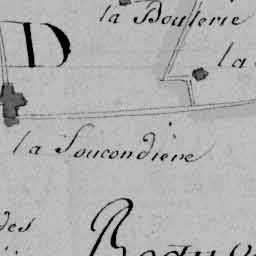 la Boulerie
D
la
la Soucondière
des